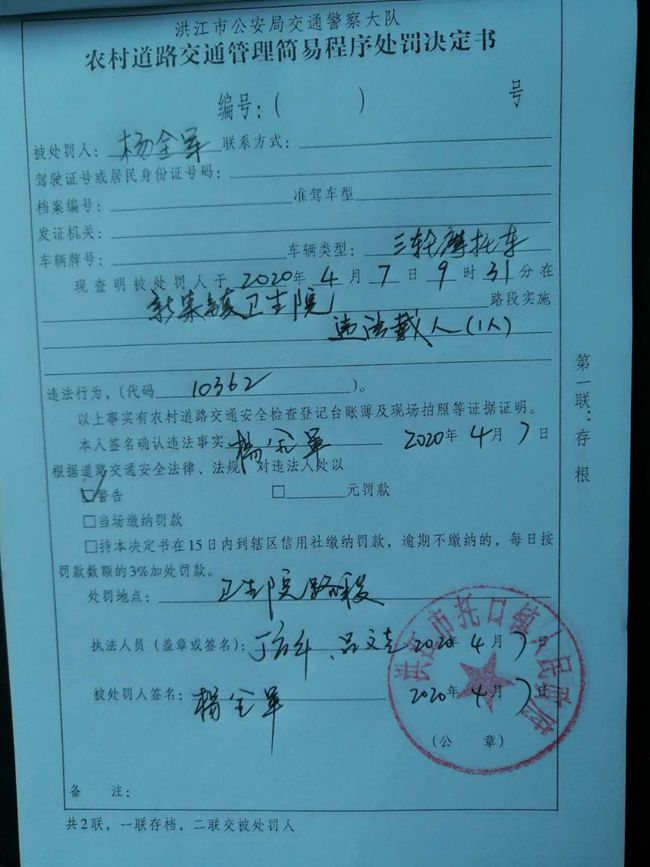 洪江市公安局交通警察大队
农村道路交通管理简易程序处罚决定书
编号:( ) 号
被处罚人: 杨全军 联系方式:
驾驶证号或居民身份证号码:
档案编号: 准驾车型
发证机关:
车辆牌号: 车辆类型: 三轮摩托车
现查明被处罚人于 2020 年 4 月 7 日 9 时 31 分在
镇卫生院 路段实施
违法载人(1人)
违法行为,(代码 10362 )。
以上事实有农村道路交通安全检查登记台账薄及现场拍照等证据证明。
本人签名确认违法事实 杨全军 2020年 4 月 7 日
根据道路交通安全法律、法规 对违法人处以
☑警告 □ 元罚款
□当场缴纳罚款
□持本决定书在15日内到辖区信用社缴纳罚款,逾期不缴纳的,每日按
罚款数额的3%加处罚款。
处罚地点: 卫生院路段
执法人员(盖章或签名): 2020年 4 月 7 日
被处罚人签名: 杨全军 2020年 4 月 7 日
(公 章)
洪江市托口镇人民政府
备 注:
共2联,一联存档,二联交被处罚人
第一联:存根